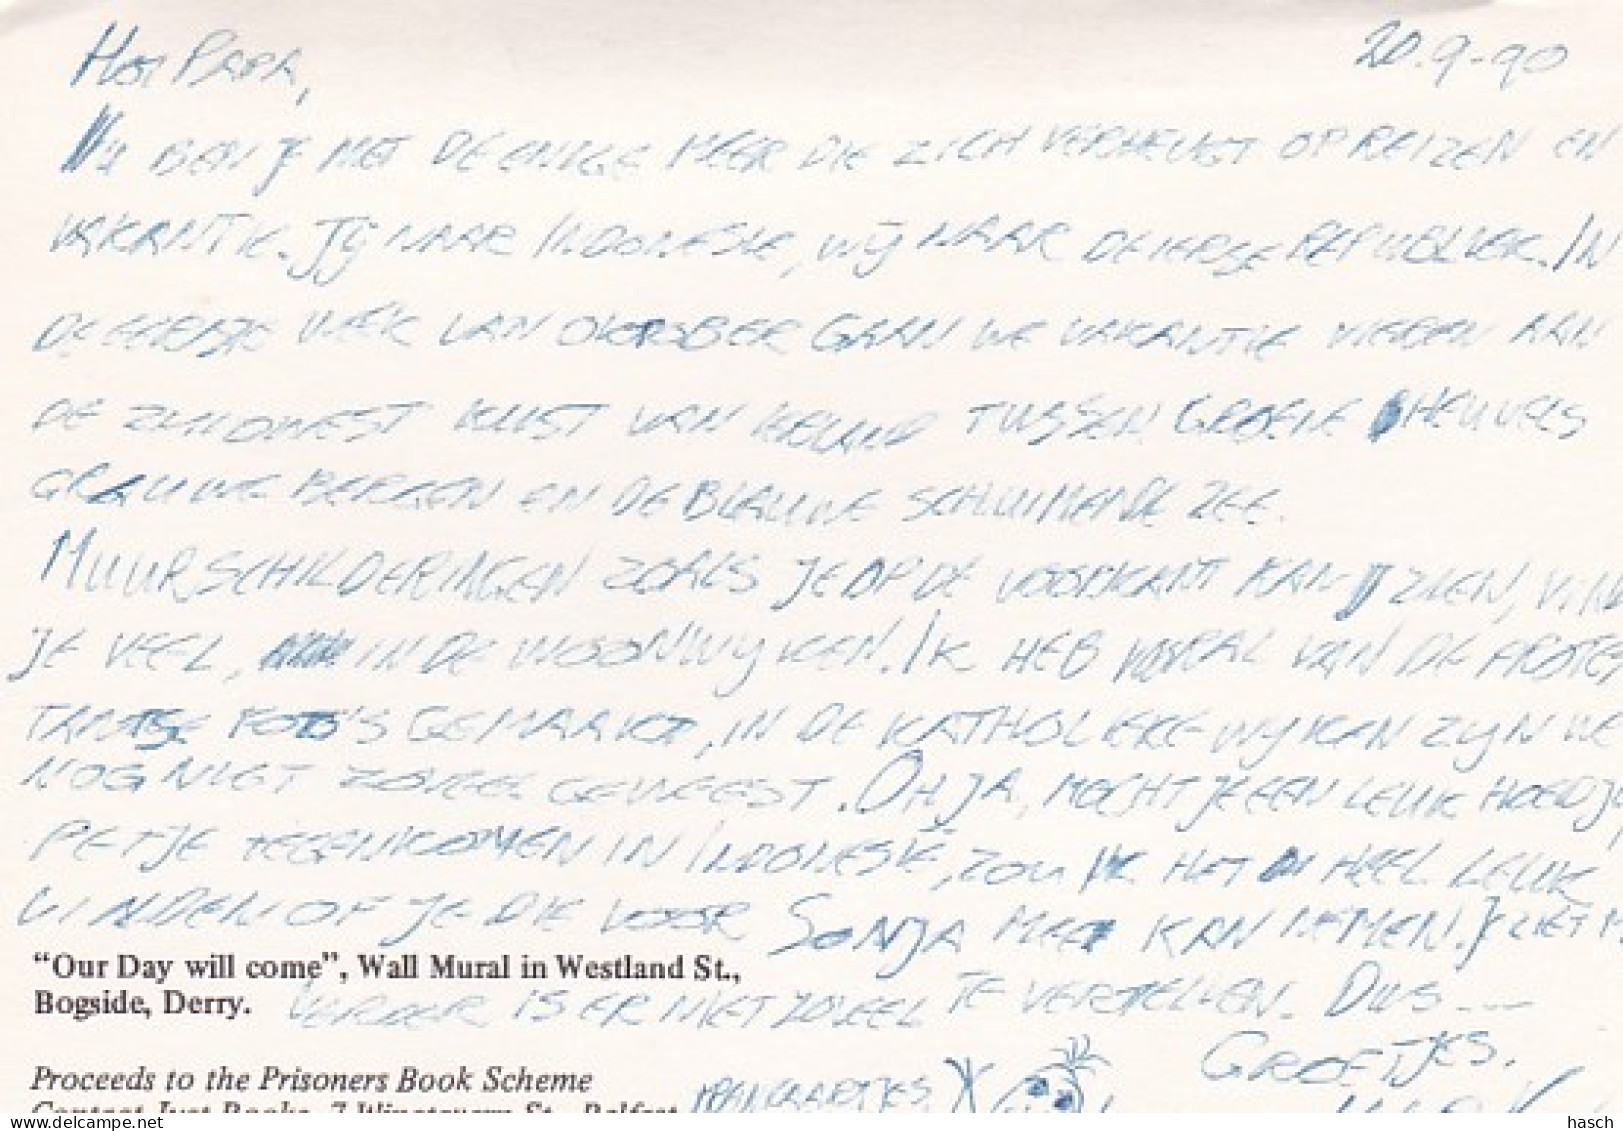 20.9-90
Hoi Papa,
Nu ben je niet de enige meer die zich verheugt op reizen en
vakantie. Jij naar Indonesie, wij naar de Ierse Republiek. In
de eerste week van oktober gaan we vakantie vieren aan
de zuidwest kust van Ierland tussen groene heuvels
grauwe bergen en de blauwe schuimende zee.
Muurschilderingen zoals je op de voorkant kan zien, vind
je veel, in de woonwijken. Ik heb vooral van de protes
tantse foto's gemaakt, in de katholieke wijken zijn we
nog niet zoveel geweest. Oh ja, mocht je een leuk hoedje
petje tegenkomen in Indonesie, zou ik het heel leuk
vinden of je die voor Sonja mee kan nemen. Je ziet
"Our Day will come", Wall Mural in Westland St.,
Bogside, Derry.
Verder is er niet zoveel te vertellen. Dus ---
Groetjes.
Proceeds to the Prisoners Book Scheme
Contact Just Books, 7 Winetavern St., Belfast
delcampe.net
hasch